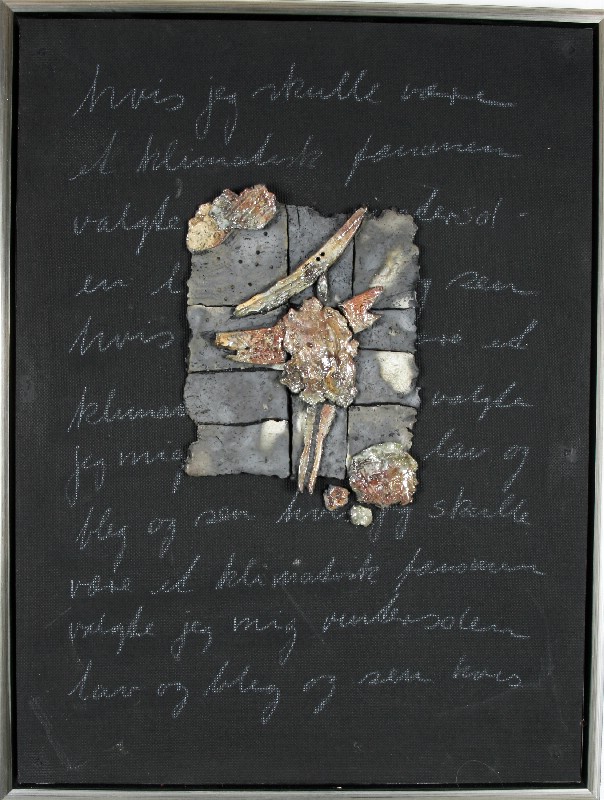 hvis jeg skulle være
et klimatisk fænomen
valgte tersol-
en l g sen
hvis re et
klimat valgte
jeg mig lav og
bleg og sen hvis jeg skulle
være et klimatisk fænomen
valgte jeg mig vintersolen
lav og bleg og sen hvis